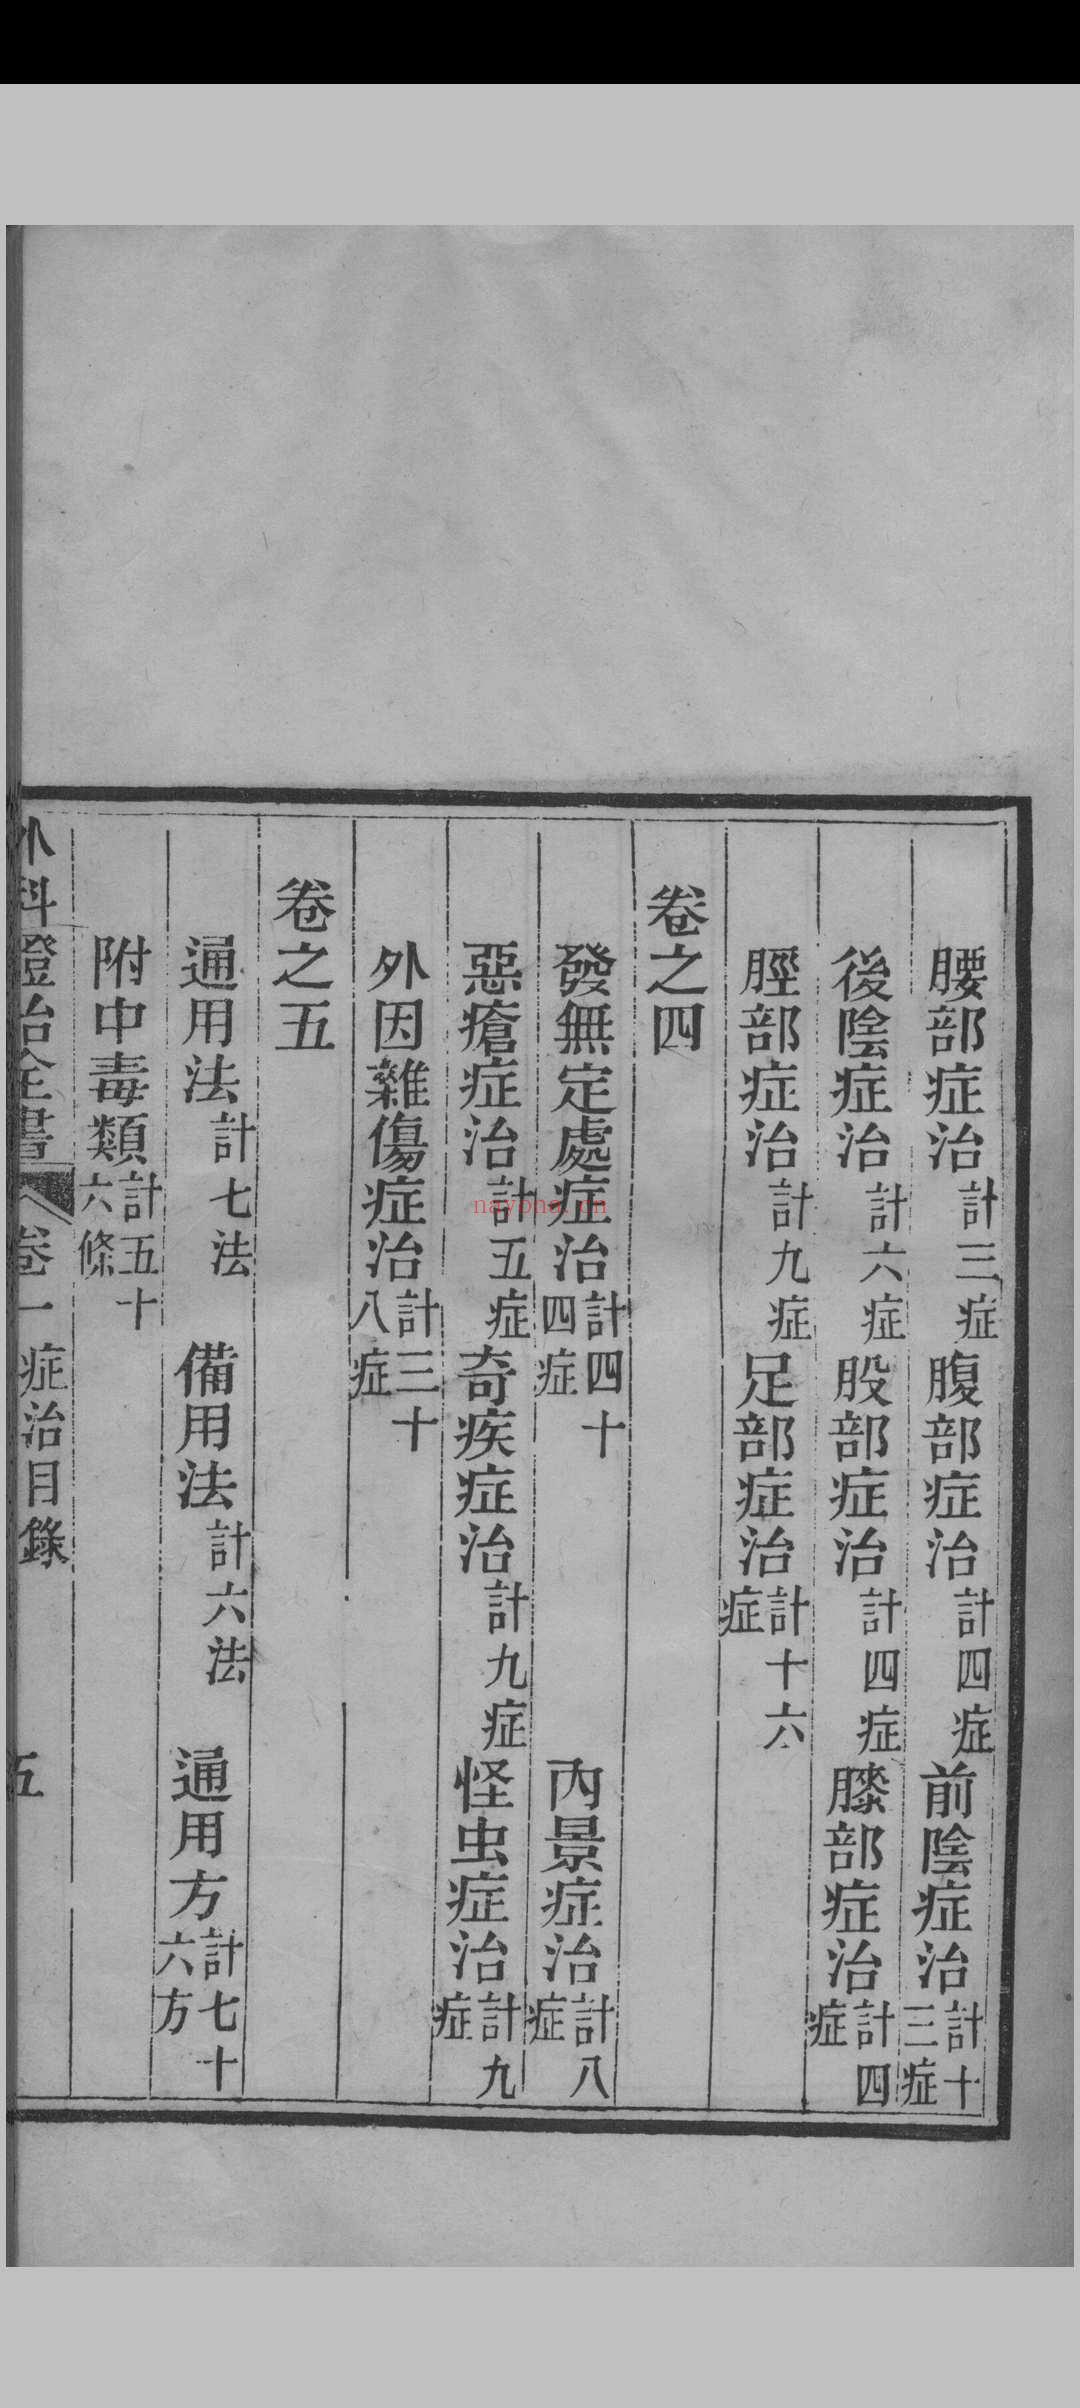 腰部症治計三症腹部症治計四症前陰症治計十三症
後陰症治計六症股部症治計四症膝部症治計四症
脛部症治計九症足部症治計十六症
卷之四
發無定處症治計四十四症 內景症治計八症
惡瘡症治計五症奇疾症治計九症怪虫症治計九症
外因雜傷症治計三十八症
卷之五
通用法計七法 備用法計六法 通用方計七十六方
附中毒類計五十六條
外科證治全書 卷一 症治目錄 五
nayona.cn